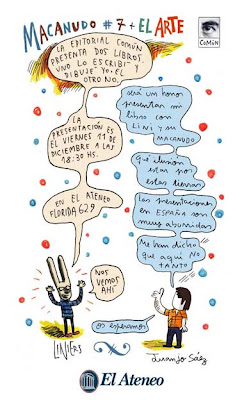 MACANUDO #7 + EL ARTE
COMÚN
LA EDITORIAL COMÚN
PRESENTA DOS LIBROS.
UNO LO ESCRIBÍ Y
DIBUJE YO. EL
OTRO NO.
LA
PRESENTACIÓN ES
EL VIERNES 11 DE
DICIEMBRE A LAS
18:30 HS.
EN EL ATENEO
FLORIDA 629
NOS
VEMOS
AHÍ
LINIERS
será un honor
presentar mi
libro con
LINI y su
MACANUDO
Qué ilusión
estar por
estas tierras
Las presentaciones
en ESPAÑA son
muy aburridas
Me han dicho
que aquí NO
TANTO
os esperamos
Juanjo Sáez
El Ateneo